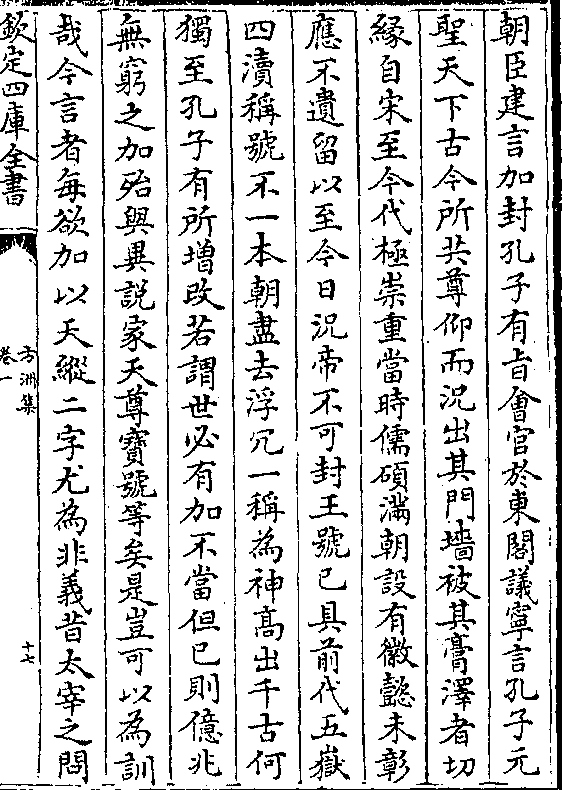 朝臣建言加封孔子有旨會官於東閣議寧言孔子元
聖天下古今所共尊仰而況出其門墻被其膏澤者切
緣自宋至今代極崇重當時儒碩滿朝設有徽懿未彰
應不遺留以至今日況帝不可封王號已具前代五嶽
四瀆稱號不一本朝盡去浮冗一稱為神髙出千古何
獨至孔子有所增改若謂世必有加不當但已則億兆
無窮之加殆與異説家天尊寳號等矣是豈可以為訓
哉今言者每欲加以天縱二字尤為非義昔太宰之問
欽定四庫全書
方洲集
卷一
十七